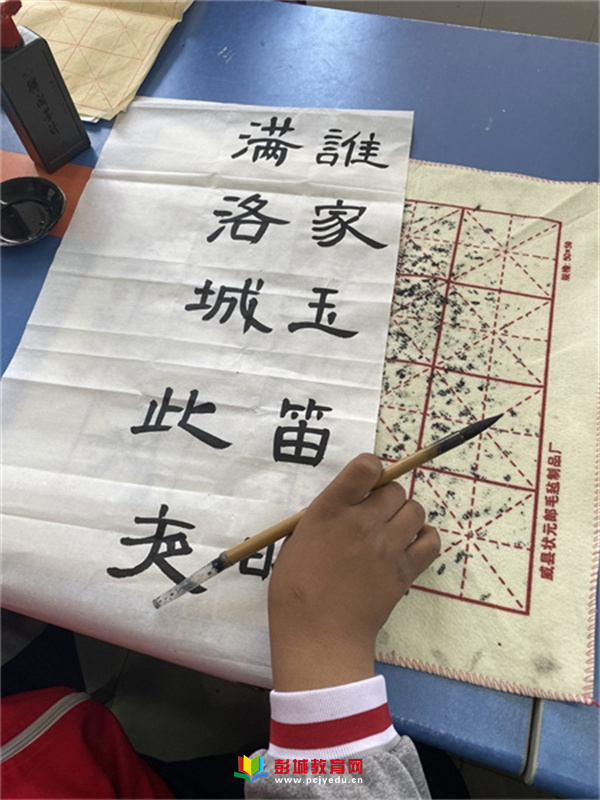 誰家玉笛
满洛城此夜
规格: 50×50
威县状元郎毛毡制品厂
彭城教育网
www.pcjyedu.com